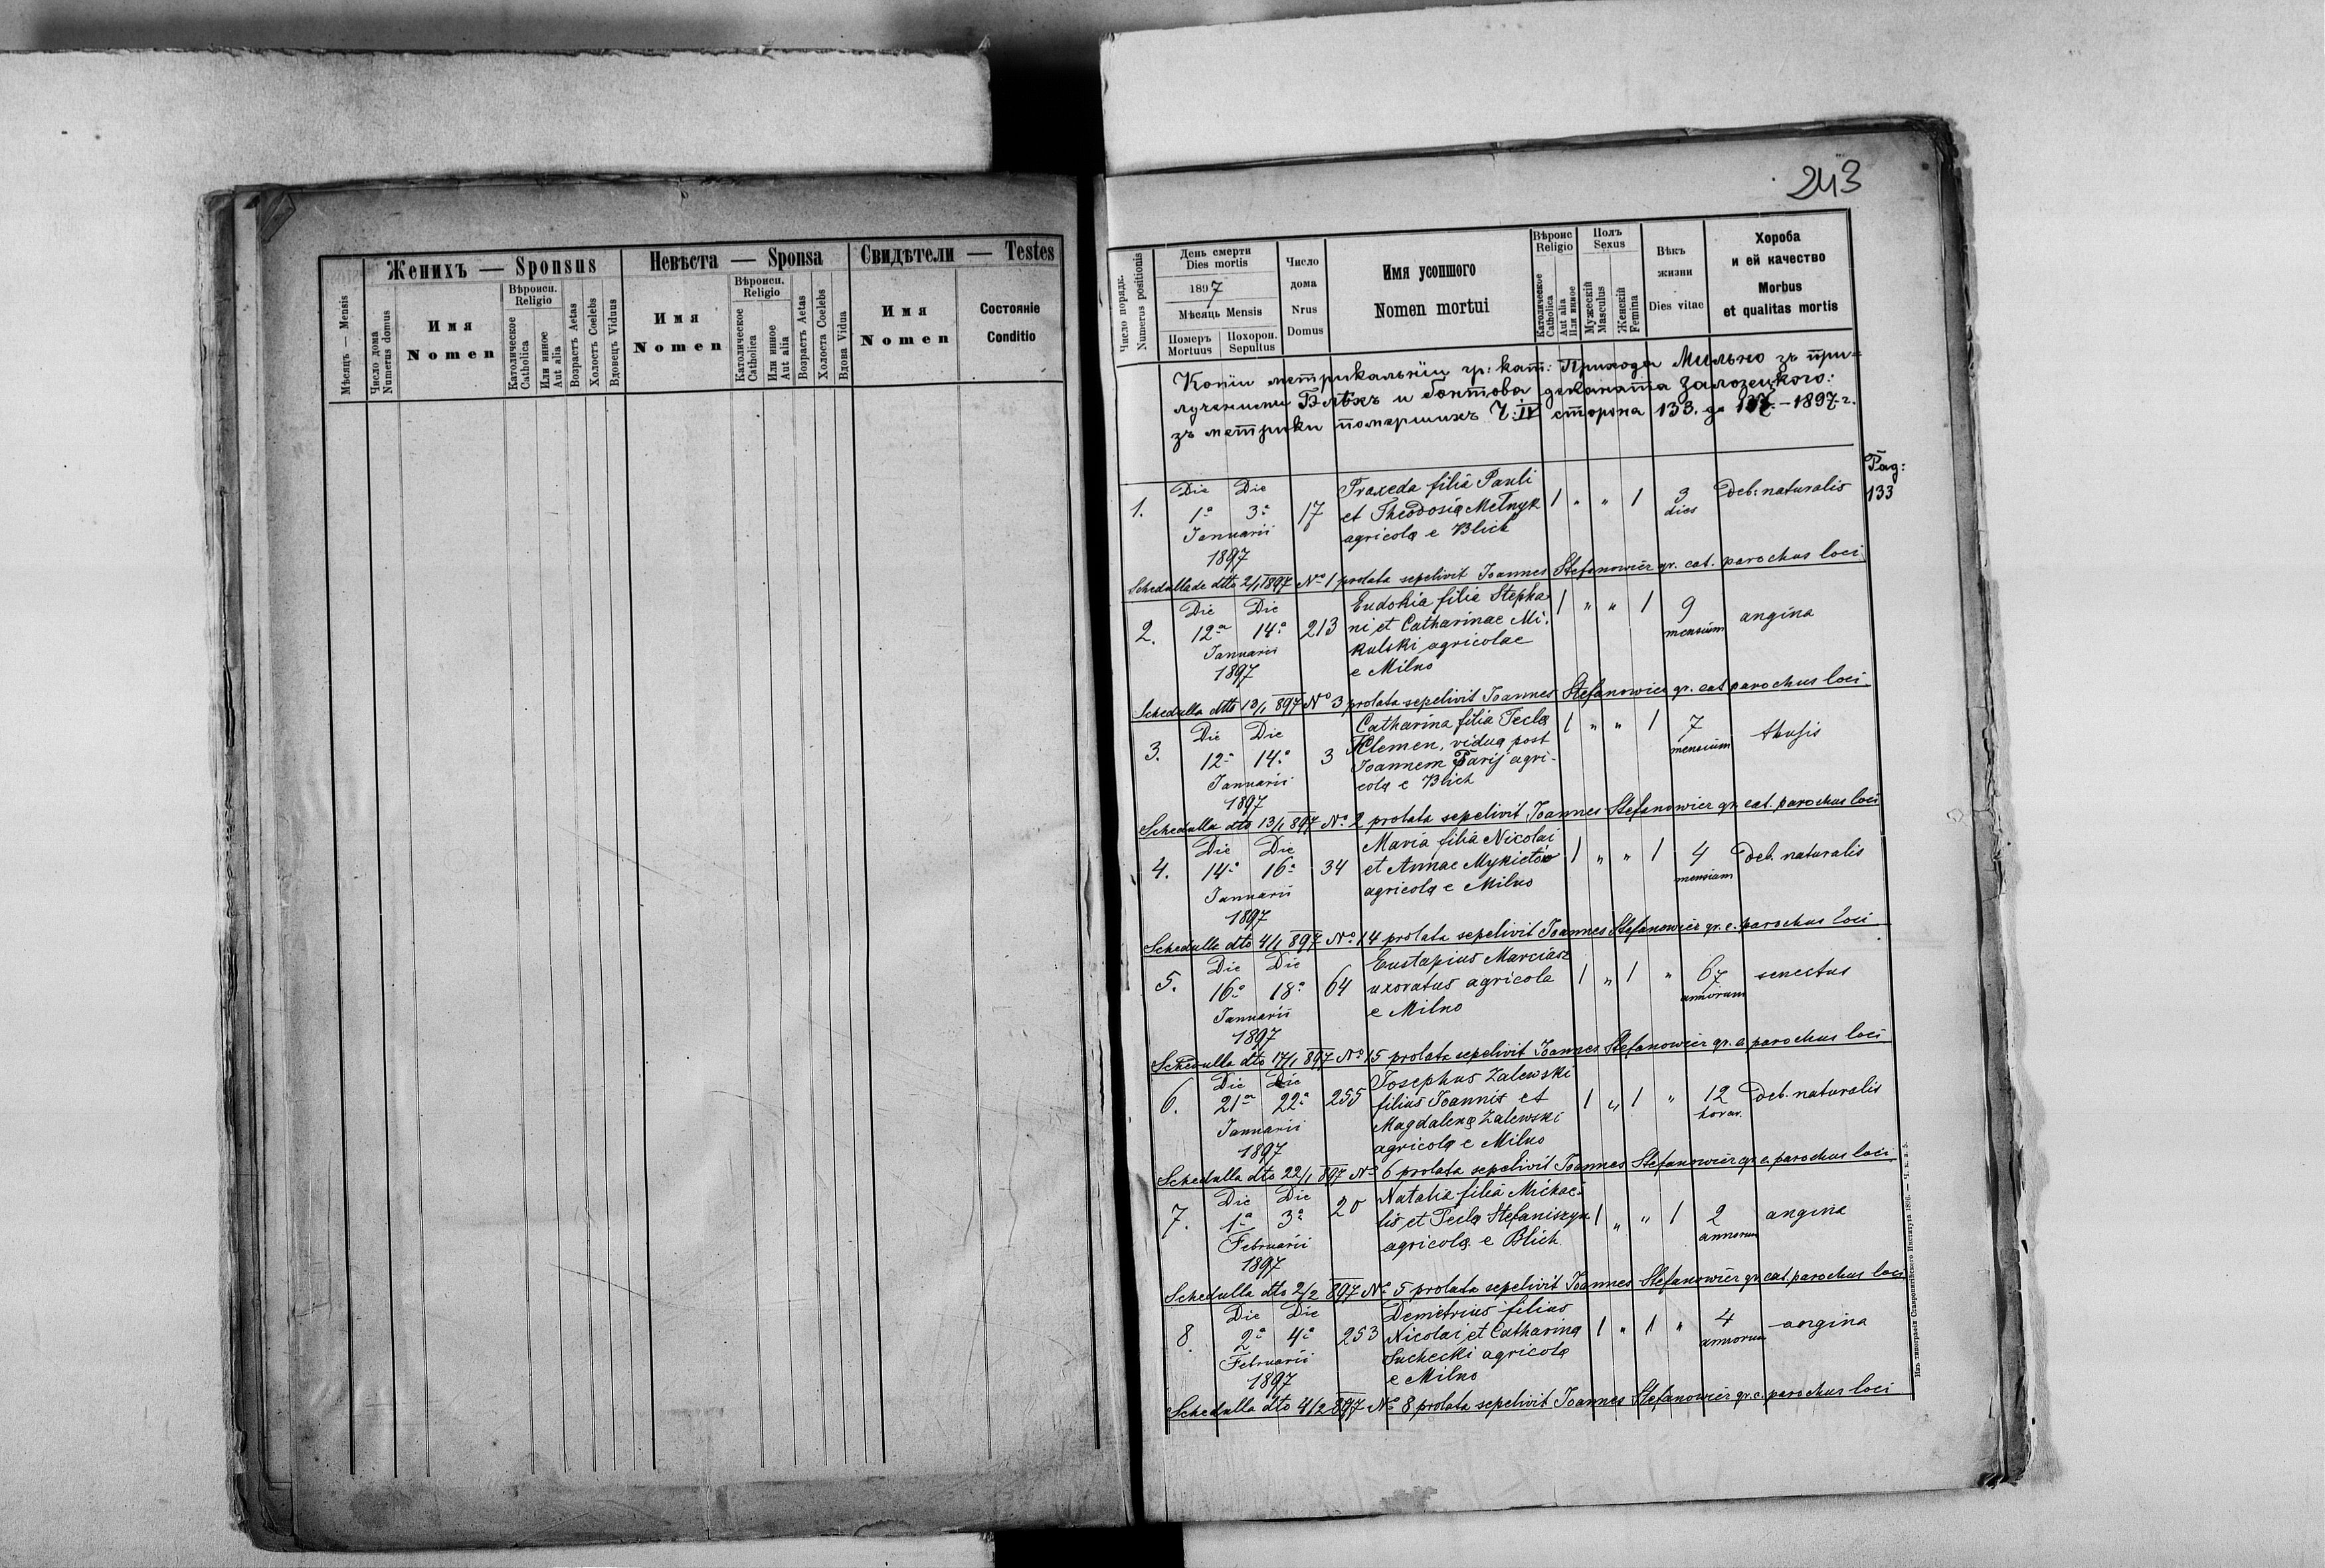 Женихъ — Sponsus
Невѣста — Sponsa
Свидѣтели — Testes
Мѣсяць — Mensis
Число дома
Numerus domus
Имя
Nomen
Вѣроисп.
Religio
Католическое
Catholica
Или инное
Aut alia
Возрастъ Aetas
Холостъ Coelebs
Вдовецъ Viduus
Имя
Nomen
Вѣроисп.
Religio
Католическое
Catholica
Или инное
Aut alia
Возрастъ Aetas
Холоста Coelebs
Вдова Vidua
Имя
Nomen
Состояніе
Conditio
243
Число порядк.
Numerus positionis
День смерти
Dies mortis
1897
Мѣсяць Mensis
Померъ
Mortuus
Похорон.
Sepultus
Число
дома
Nrus
Domus
Имя усопшого
Nomen mortui
Вѣроис
Religio
Католическое
Catholica
Aut alia
Или инное
Полъ
Sexus
Мужескій
Masculus
Женскій
Femina
Вѣкъ
жизни
Dies vitae
Хороба
и ей качество
Morbus
et qualitas mortis
Копіи метрикальніи гр: кат: Прихода Мильно зъ при=
лученіями Блѣхъ и Гонтова деканата Залозецкого:
зъ метрики помершихъ Ч: IV сторона 133. до 137.-1897.г.
Pag:
133
1.
Die Die
1ª 3ª
Januarii
1897
17
Praxeda filia Pauli
et Theodosia Melnyk
agricola e Blich
1 " " 1
3
dies
Deb: naturalis
Schedulla de dtto 2/1 1897 No 1 prolata sepelivit Joannes Stefanowicz gr. cat. parochus loci
2.
Die Die
12ª 14ª
Januarii
1897
213
Eudokia filia Stepha
ni et Catharinae Mi.
kulski agricolae
e Milno
1 " " 1
9
mensium
angina
Schedulla dtto 13/1 897 No 3 prolata sepelivit Joannes Stefanowicz gr. cat parochus loci
3.
Die Die
12ª 14ª
Januarii
1897
3
Catharina filia Tecla
Klemen, vidua post
Joannem Parij agri-
cola e Blich
1 " " 1
7
mensium
thusis
Schedulla dto 13/1 897 No. 2 prolata sepelivit Joannes Stefanowicz gr. cat. parochus loci
4.
Die Die
14ª 16ª
Januarii
1897
34
Maria filia Nicolai
et Annae Mykietów
agricola e Milno
1 " " 1
4
mensium
Deb. naturalis
Schedulla dto 4/1 897 No. 14 prolata sepelivit Joannes Stefanowicz gr. c. parochus loci
5.
Die Die
16ª 18ª
Januarii
1897
64
Eustapius Marciasz
uxoratus agricola
e Milno
1 " 1 "
67
annorum
senectus
Schedulla dto 17/1 897 No 15 prolata sepelivit Joannes Stefanowicz gr. c. parochus loci
6.
Die Die
21ª 22ª
Januarii
1897
255
Josephus Zalewski
filius Joannis et
Magdalena Zalewski
agricola e Milno
1 " 1 "
12
horar.
Deb. naturalis
Schedulla dto 22/1 897 No 6 prolata sepelivit Joannes Stefanowicz gr. c. parochus loci
7.
Die Die
1ª 3ª
Februarii
1897
20
Natalia filia Michae-
lis et Tecla Stefaniszyn
agricola e Blich
1 " " 1
2
annorum
angina
Schedulla dto 2/2 897 No. 5 prolata sepelivit Joannes Stefanowicz gr. cat. parochus loci
8.
Die Die
2ª 4ª
Februarii
1897
253
Demetrius filius
Nicolai et Catharina
Suchecki agricola
e Milno
1 " 1 "
4
annorum
angina
Schedulla dto 4/2 897 No 8 prolata sepelivit Joannes Stefanowicz gr. c. parochus loci
Изъ типографіи Ставропигійского Института 1896. — Ч. к. з. 5.